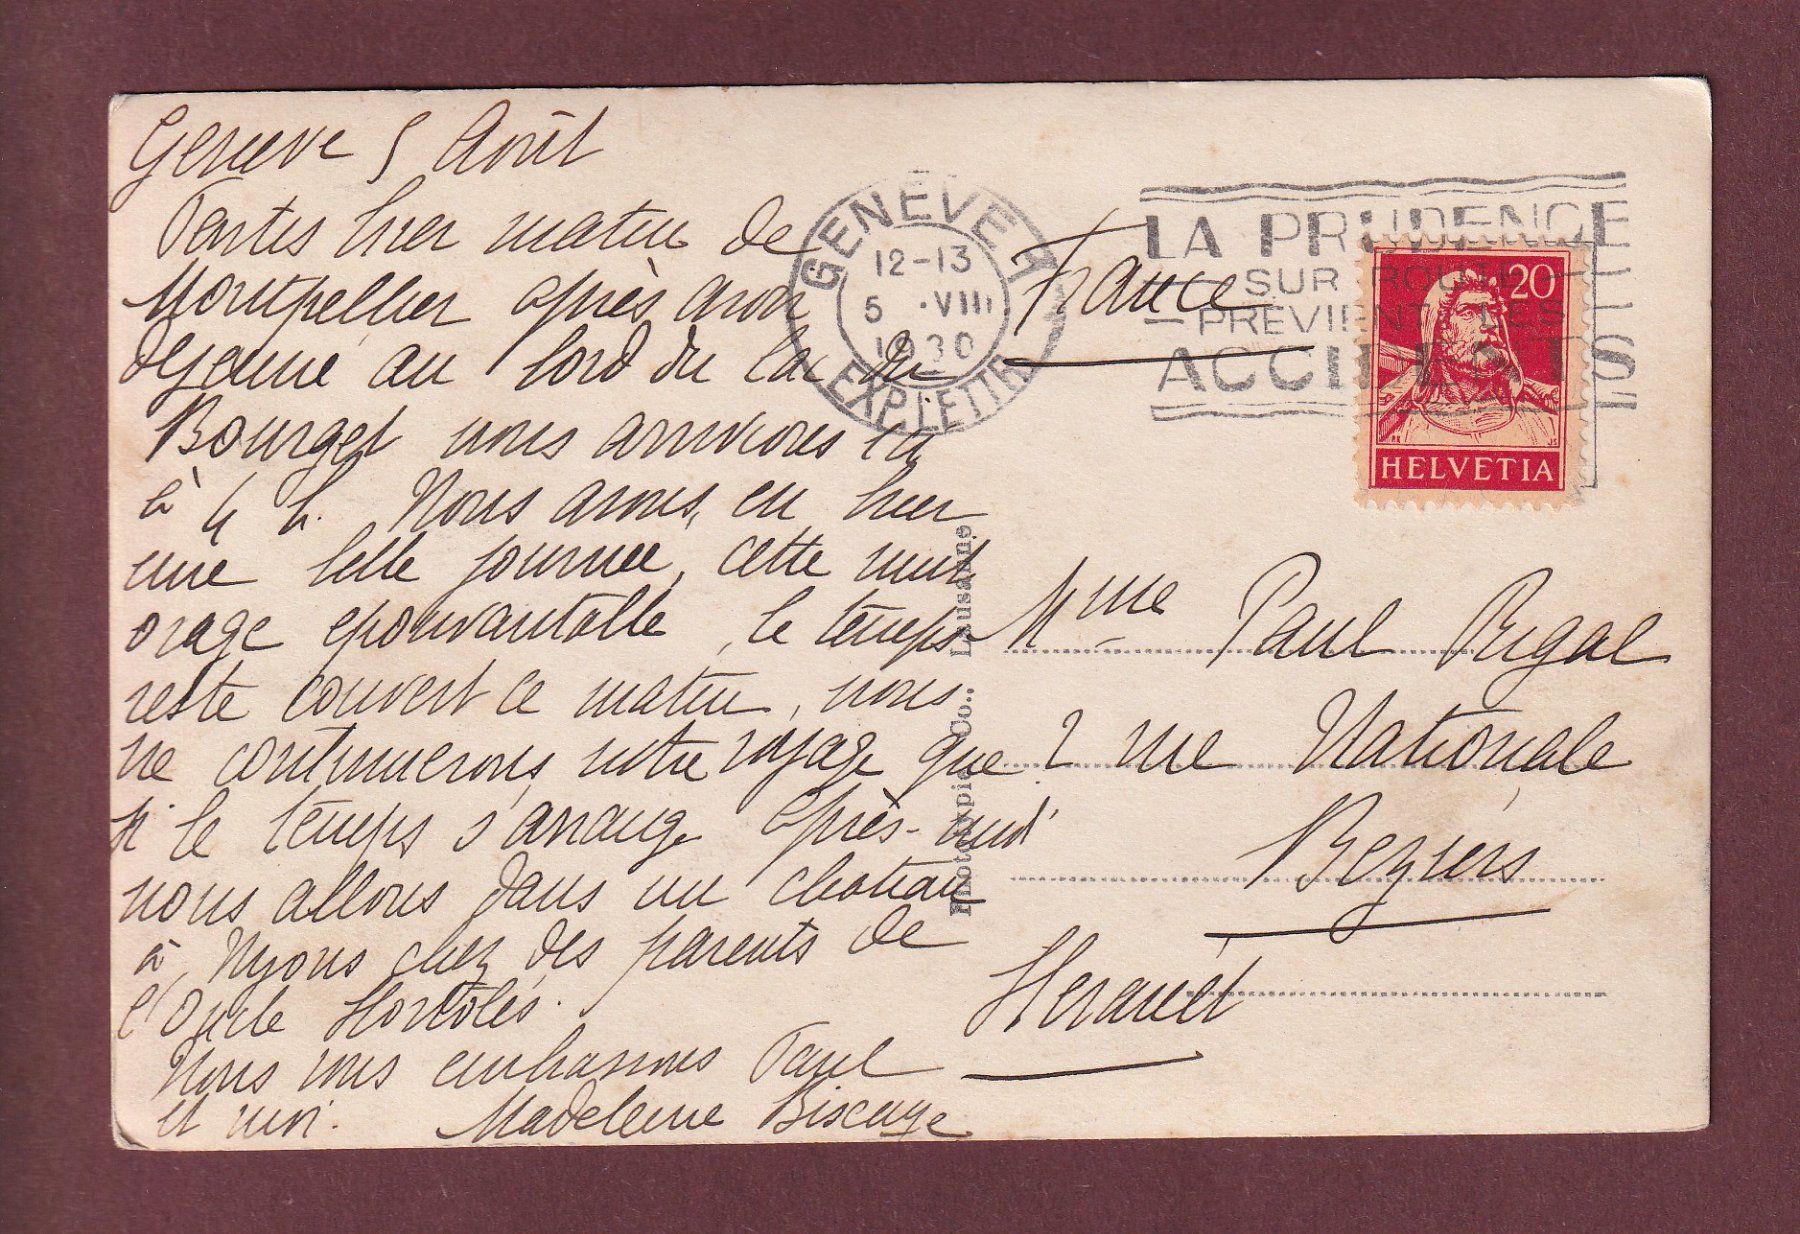 Geneve 5 Août
Partis hier matin de
Montpellier après avoir
dejeuné au bord du lac du
Bourget nous arrivions ici
à 4 h. Nous avons eu hier
une belle journee, cette nuit
orage epouvantable, le temps
reste couvert ce matin, nous
ne continuerons notre voyage que
si le temps s'arrange après-midi
nous allons dans un chateau
à Nyons chez des parents de
l'Oncle Hortolès.
Nous vous embrassons Paul
et moi. Madeleine Biscaye
GENÈVE 1
12-13
5 ·VIII
1930
EXP. LETTR.
LA PRUDENCE
SUR ROUTE
PREVIENT LES
ACCIDENTS
20
HELVETIA
France
Mme Paul Rigal
2 rue Nationale
Beziers
Herault
Phototypie Co., Lausanne